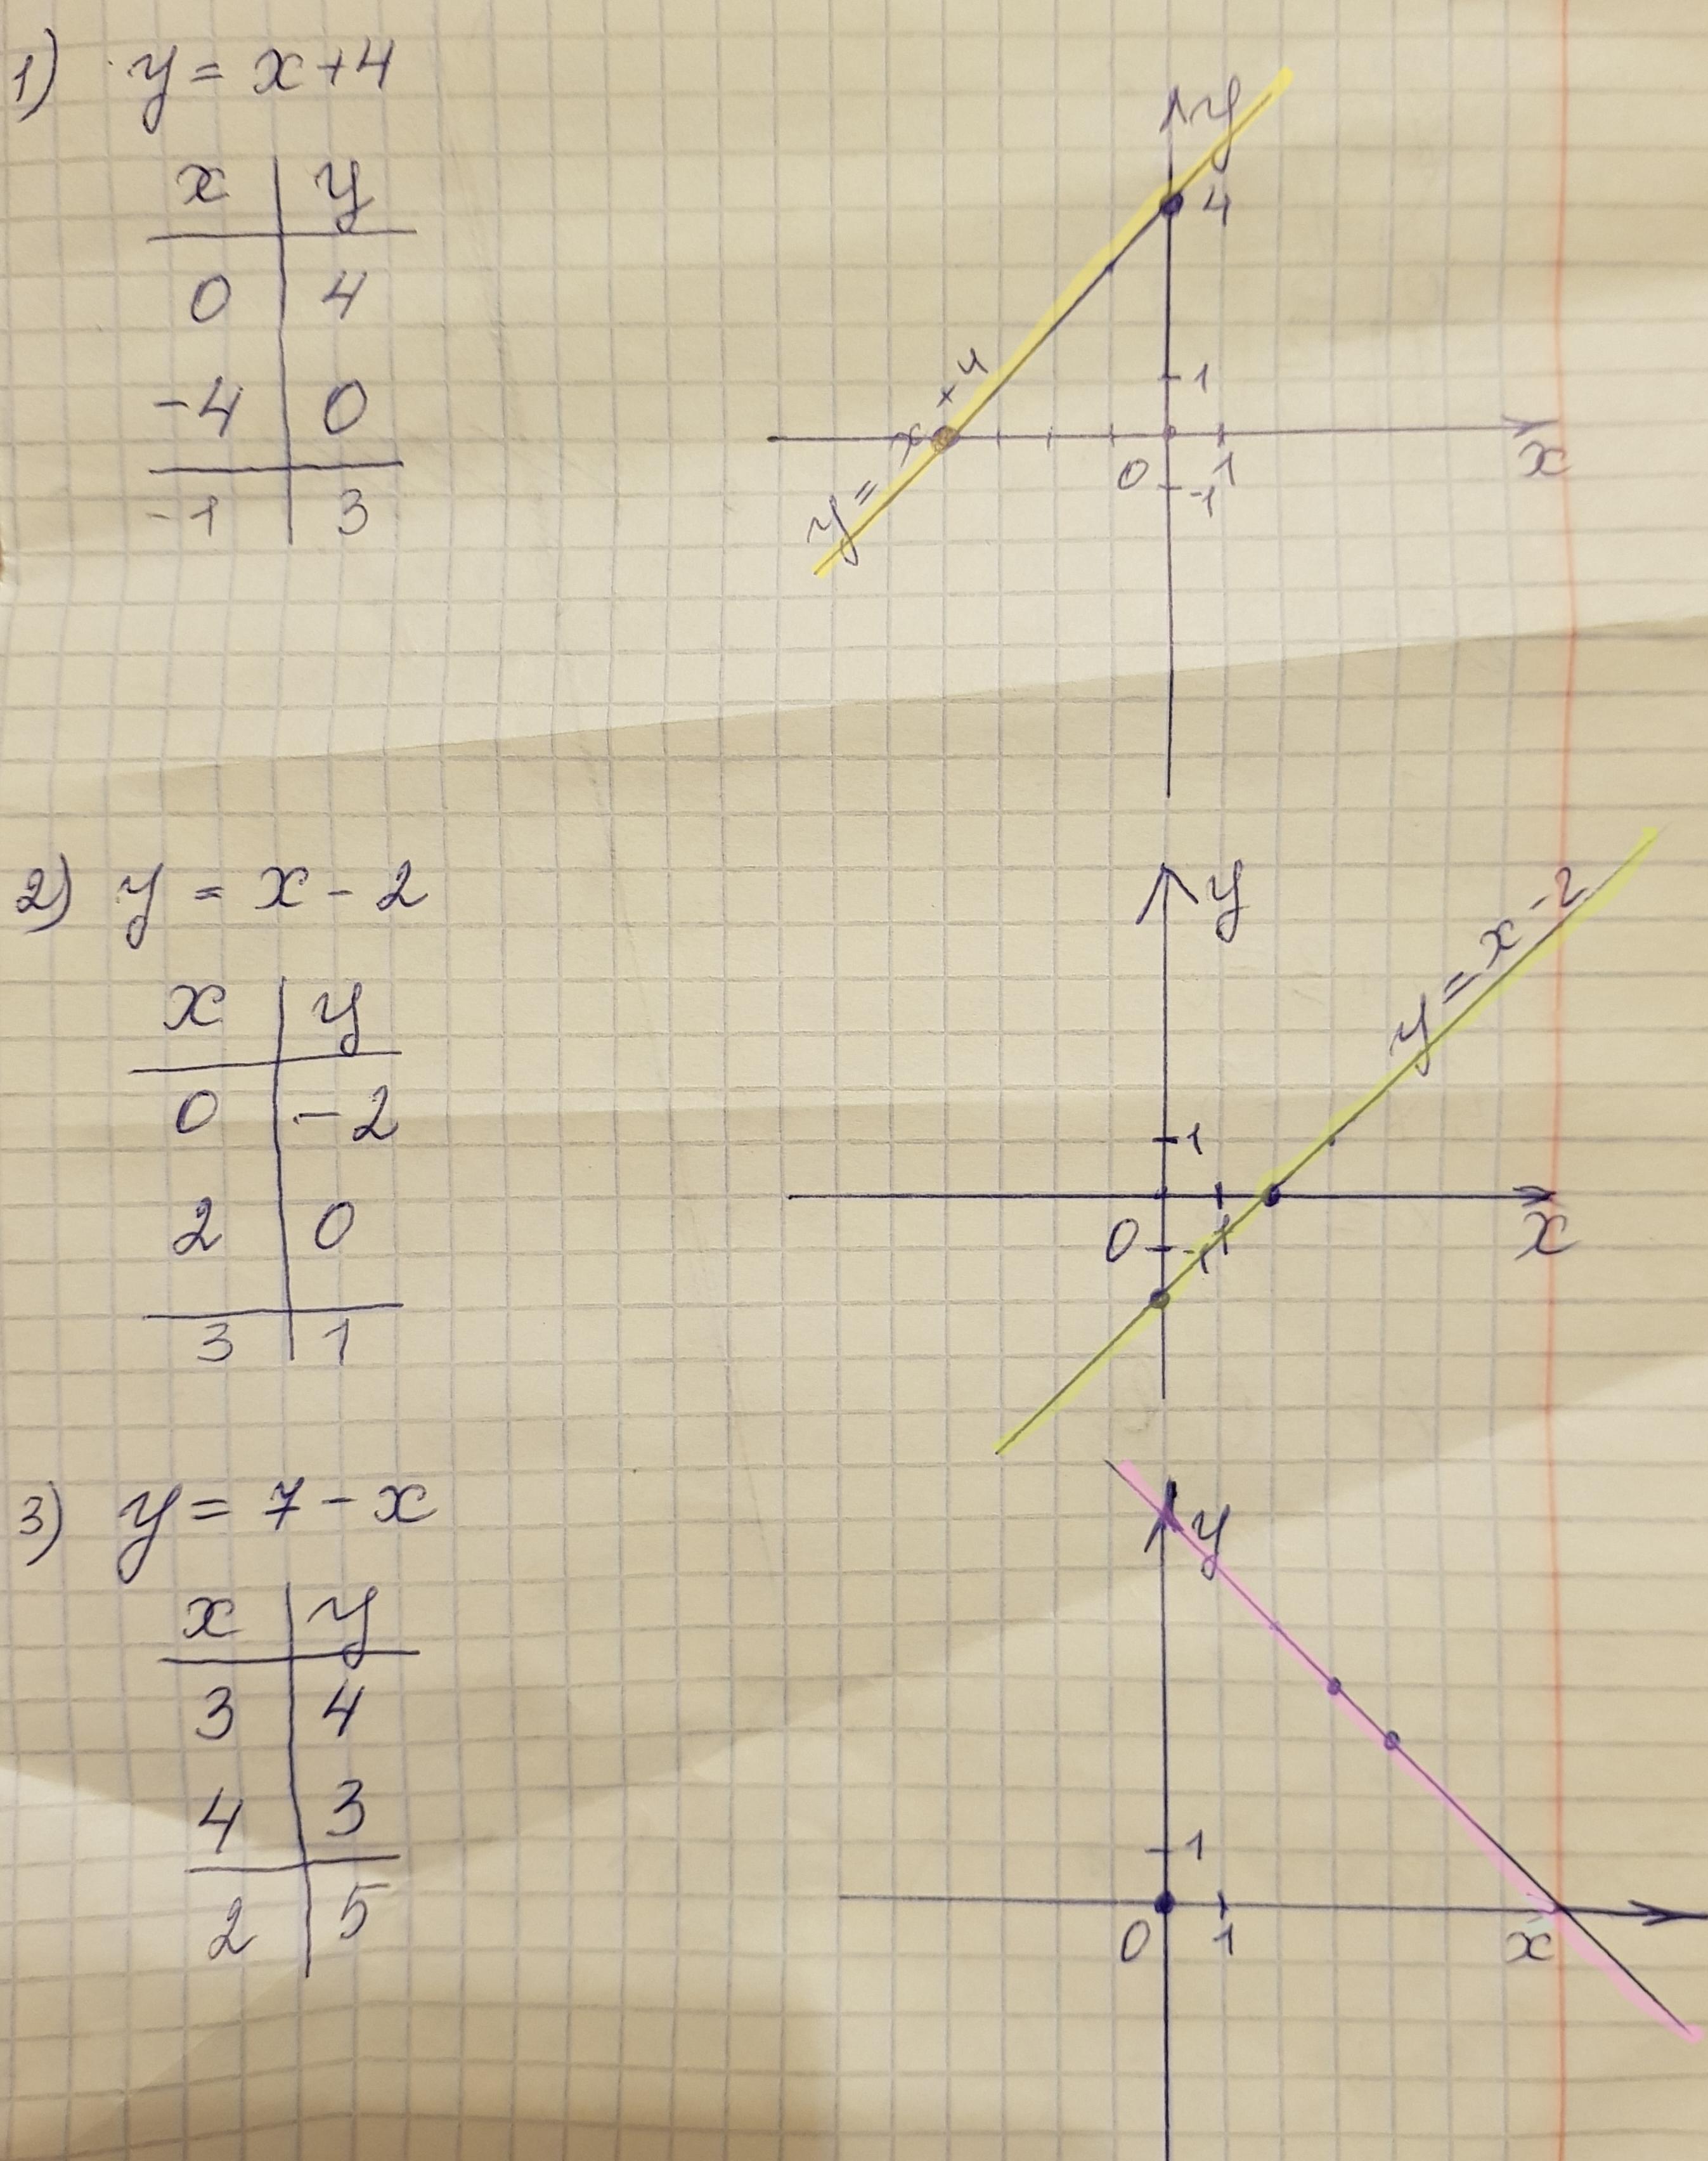 1) y = x + 4
x | y
0 | 4
-4 | 0
-1 | 3
y
4
1
0 1
-1
x
y = x + 4
2) y = x - 2
x | y
0 | -2
2 | 0
3 | 1
y
y = x - 2
1
0 -1 1
x
3) y = 7 - x
x | y
3 | 4
4 | 3
2 | 5
y
1
0 1 x